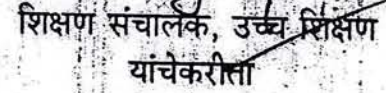 शिक्षण संचालक, उच्च शिक्षण
यांचेकरीता